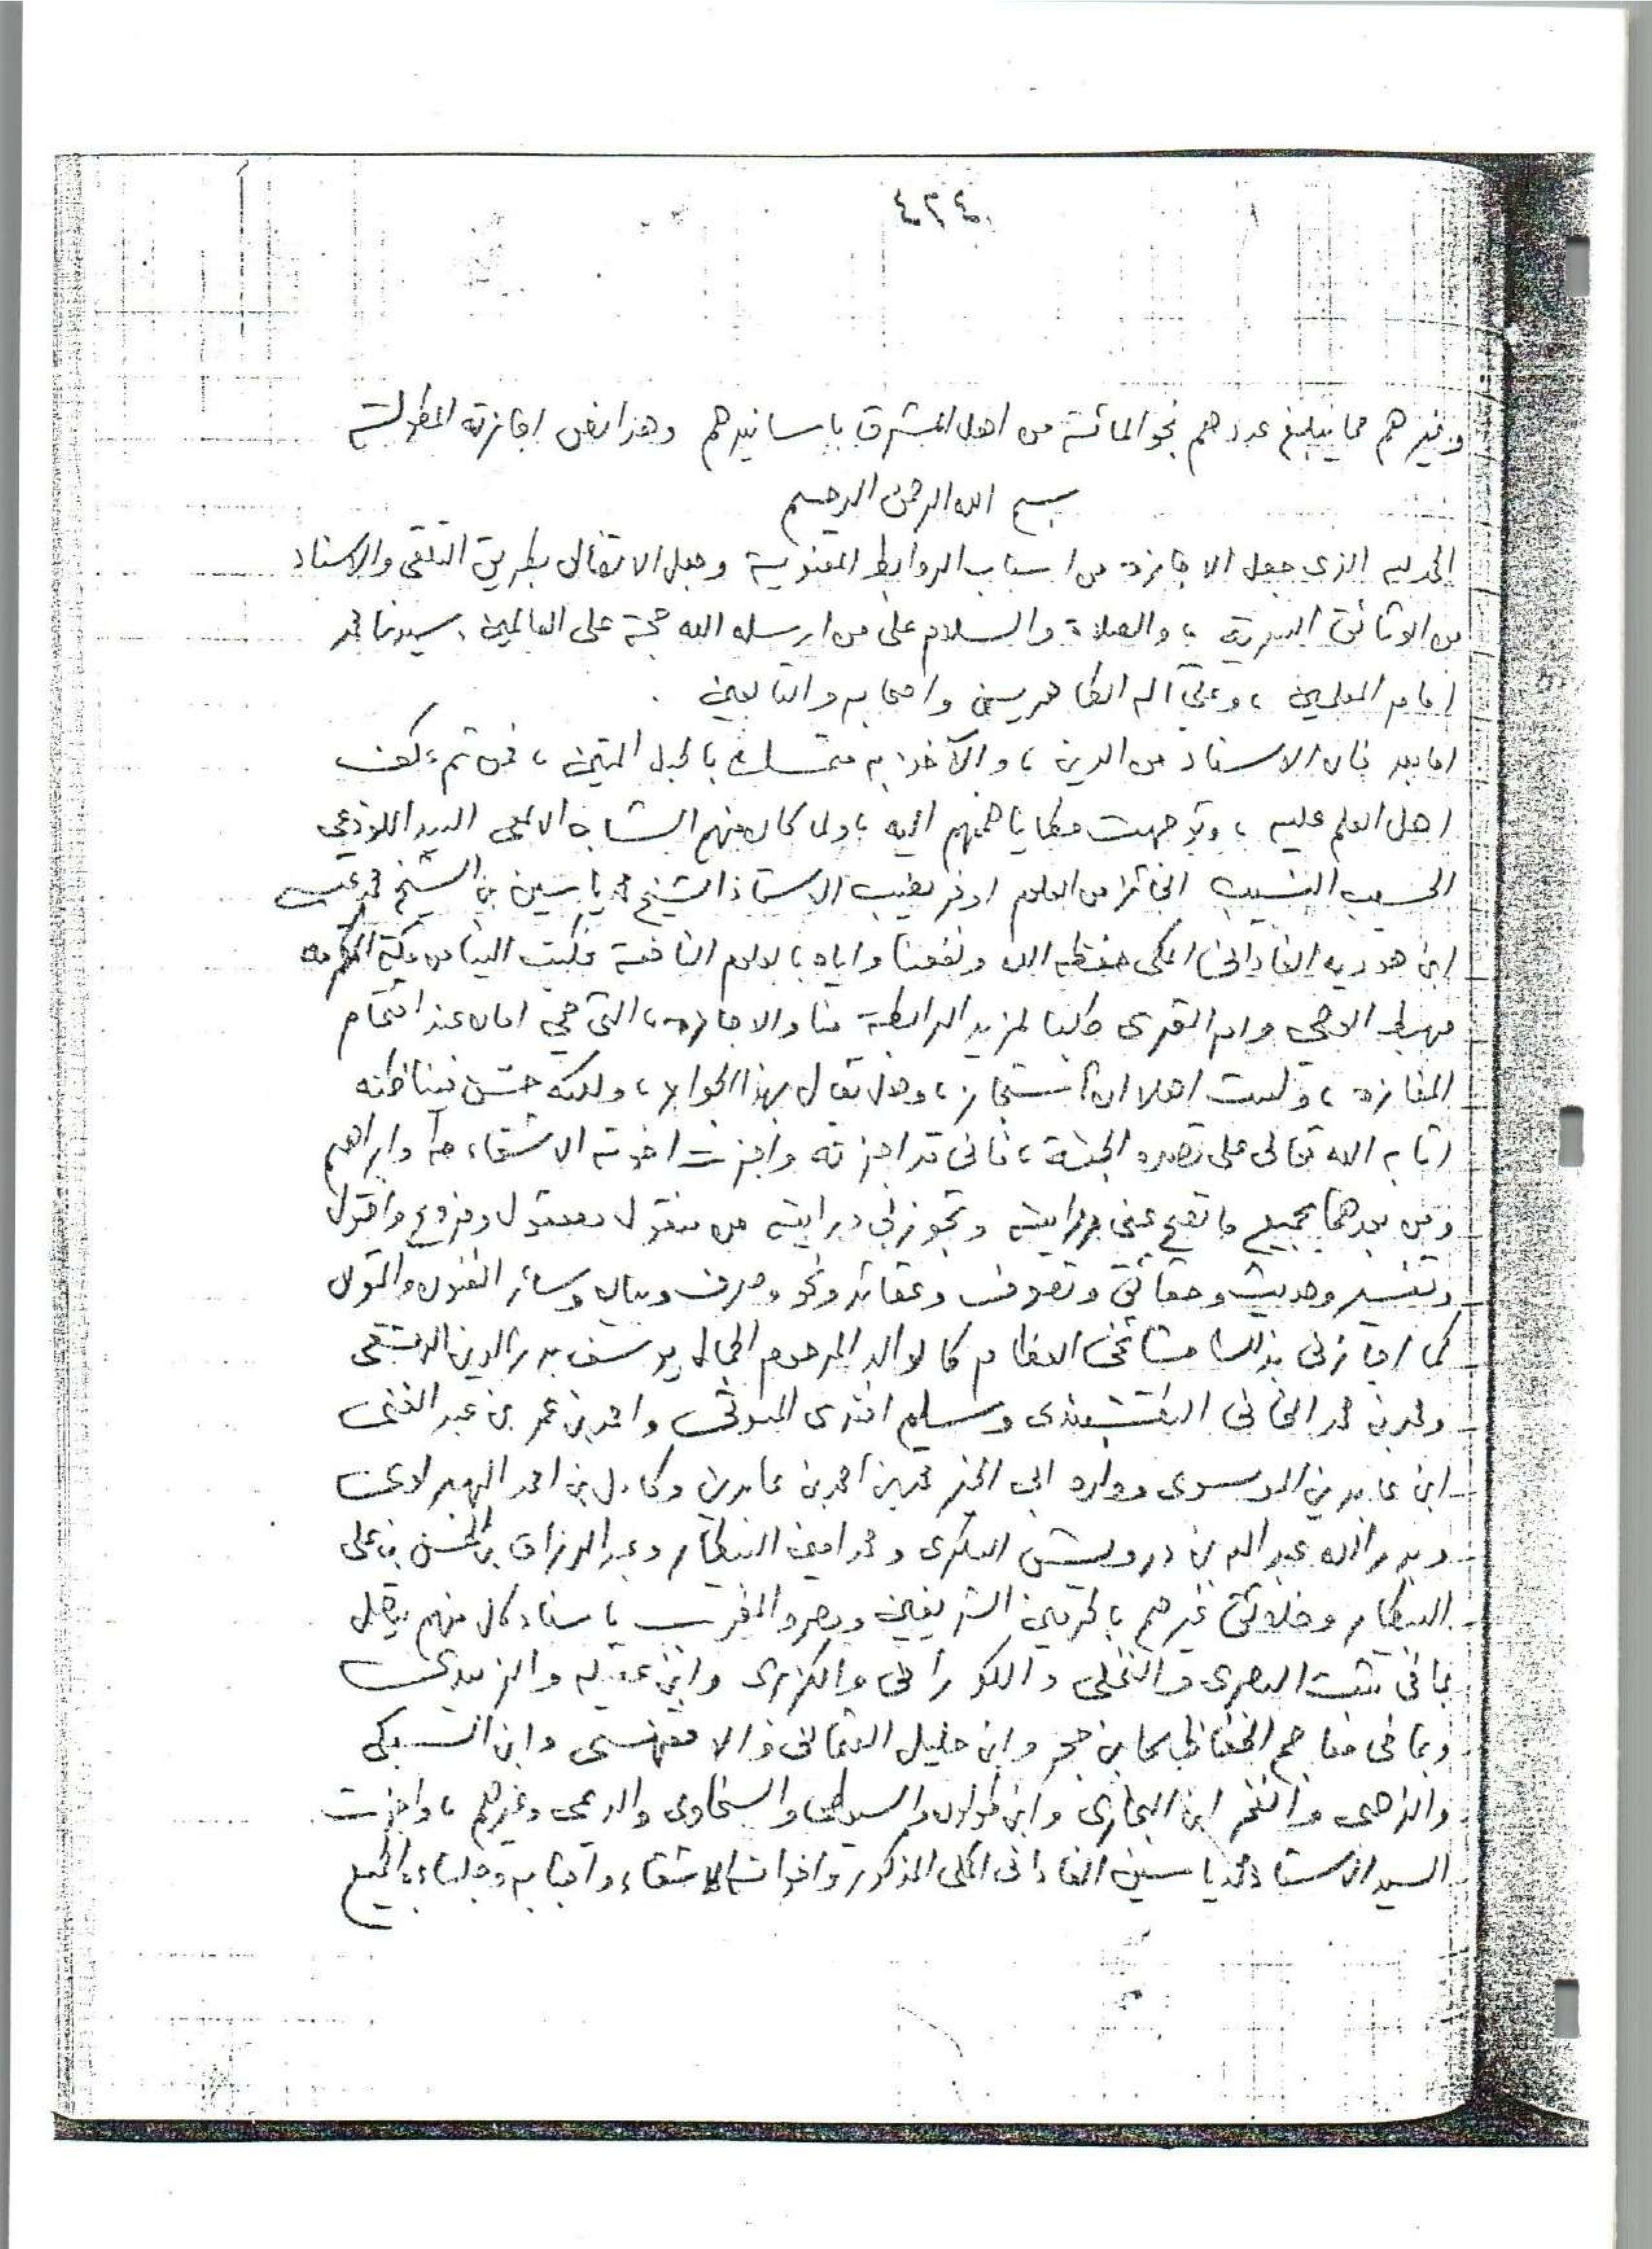 ٤٣٤
وغيرهم مما يبلغ عددهم نحو المائة من اهل المشرق باسانيدهم وهذا نص اجازته المطولة
بسم الله الرحمن الرحيم
الحمد لله الذى جعل الاجازة من اسباب الروابط المعنوية وجعل الاتصال بطريق التلقى والاسناد
من الوثائق السرية ، والصلاة والسلام على من ارسله الله حجة على العالمين ، سيدنا محمد
امام المعلمين ، وعلى آله الطاهرين واصحابه والتابعين .
اما بعد فان الاسناد من الدين ، والآخذ به متمسك بالحبل المتين ، فمن ثم عكف
اهل العلم عليه ، وتوجهت مطايا هممهم اليه ، ولما كان منهم الشاب الالمعى السيد اللوذعي
الحسيب النسيب الحائز من العلوم اوفر نصيب الاستاذ الشيخ محمد ياسين بن الشيخ محمد عيسى
ابن اوديه الفادانى المكى حفظه الله ونفعنا واياه بالعلوم النافعة فكتب الينا من مكة المكرمه
مهبط الوحى وام القرى طالبا لمزيد الرابطة منا والاجازة ، التى هي امان عند اقتحام
المفازة ، ولست اهلا ان استجاز ، وهل يقال بهذا الجواز ، ولكنه حسّن فينا ظنه
اثابه الله تعالى على قصده الجنة ، فانى قد اجزته واجزت اخوته الاشقاء طه وابراهيم
ومن بعدهما بجميع ما تصح عنى روايته وتجوز لى درايته من منقول ومعقول وفروع واصول
وتفسير وحديث وحقائق وتصوف وعقائد ونحو وصرف وبيان وسائر الفنون والمتون
كما اجازنى بذلك مشائخى العظام كالوالد المرحوم الجمال يوسف بدر الدين الدمشقى
ومحمد بن محمد الخانى النقشبندى وسليم افندى المسوتى واحمد بن عمر بن عبد الغنى
ابن عابدين الموسوى وولده ابى الخير محمد بن احمد بن عابدين وكامل بن احمد الهبراوى
وبدر الدين عبد الله بن درويش السكرى ومحمد امين البيطار وعبد الرزاق بن الحسن بن على
البيطار وخلائق غيرهم بالحرمين الشريفين ومصر والمغرب باسناد كل منهم يتصل
بما فى ثبت البصرى والنخلى والكورانى والكزبرى وابن عقيله والزبيدى
وبما فى معاجم الحفاظ كابن حجر وابن خليل العثمانى والاقفهسى وابن السبكى
والذهبى والفخر ابن البخارى وابن طولون والسيوطى والسخاوى والديمى وغيرهم ، واجزت
السيد الاستاذ محمد ياسين الفادانى المكى المذكور واخوانه الاشقاء واحبابه وجلساءه الجميع